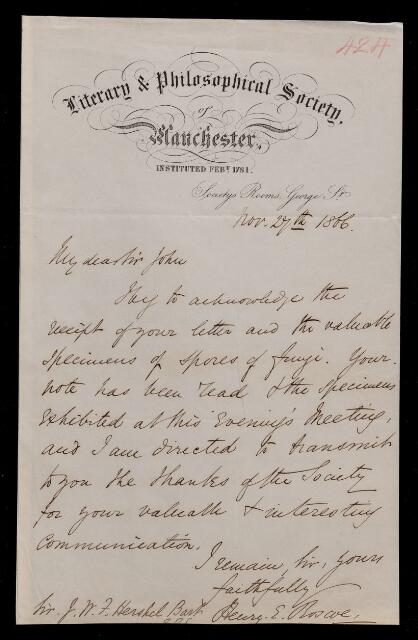 424
Literary & Philosophical Society,
of
Manchester,
INSTITUTED FEBY. 1781.
Society's Rooms, George St
Nov. 27th 1866.
My dear Sir John
I beg to acknowledge the
receipt of your letter and the valuable
specimens of spores of fungi. Your
note has been read & the specimens
exhibited at this Evening's Meeting,
and I am directed to transmit
to you the thanks of the Society
for your valuable & interesting
communication.
I remain, Sir, yours
faithfully
Sir J. W. F. Hershel Bart Henry. E. Roscoe,